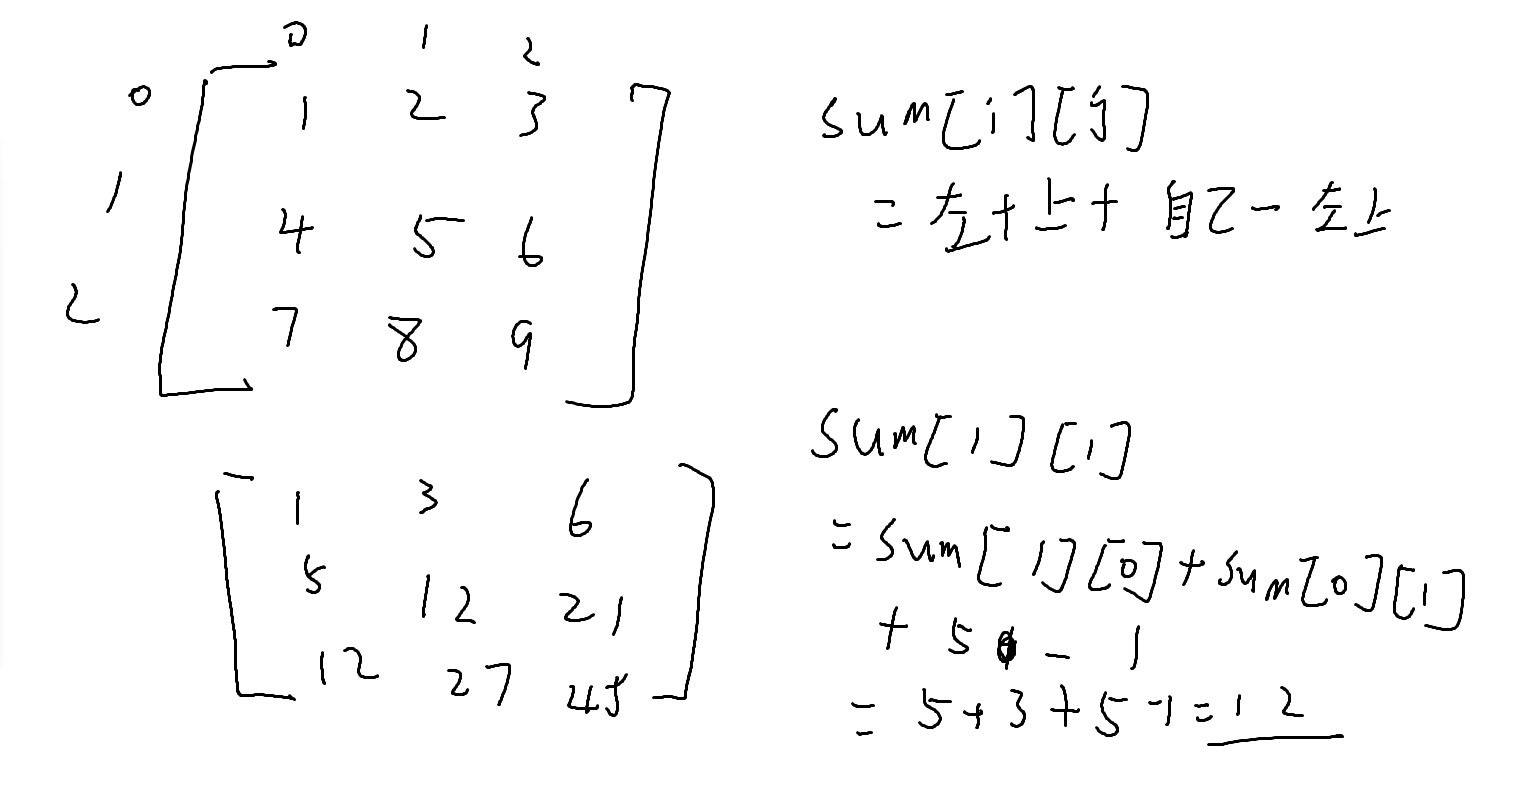 0 1 2
0 1 2 3
1 4 5 6
2 7 8 9
sum[i][j]
= 左+上+ 自己-左上
1 3 6
5 12 21
12 27 45
sum[1][1]
= sum[1][0]+sum[0][1]
+ 5 - 1
= 5+3+5-1=12